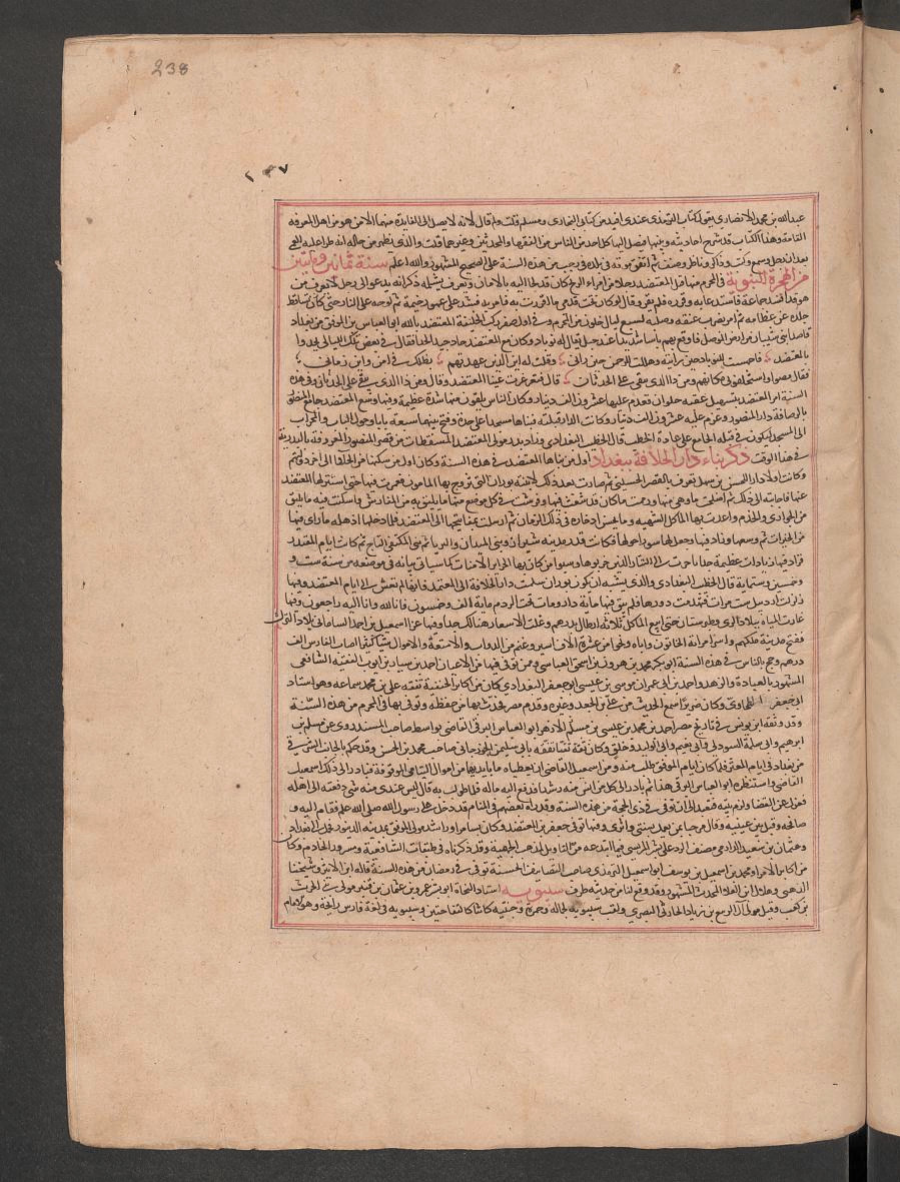 238
٢٣٧
عبدالله بن محمد الانصاري يقول كتاب الترمذي عندي افيد من كتابي البخاري ومسلم قلت ولم قال لانه لا يصل الى الفايدة منهما الا من هو من اهل المعرفة
التامة وهذا الكتاب قد شرح احاديثه وبينها فيصل اليها كل احد من الناس من الفقها والمحدثين وغيرهما قلت والذي يظهر من حاله انه طرا عليه العمى
بعد ان رحل وسمع وكتب وذاكر وناظر وصنف ثم اتفق موته في بلده في رجب من هذه السنة على الصحيح المشهور والله اعلم سنة ثمانين ومايتين
من الهجرة النبوية في المحرم منها قتل المعتضد رجلا من امراء الزنج كان قد لجا اليه بالامان ويعرف بشيلمة ذكر انه يدعو الى رجل لا يعرف من
هو قد افسد جماعة فاستدعا به وقرره فلم يقر وقال لو كان تحت قدمي ما اقررت به فامر به فشد على عمود خيمة ثم لوحه على النار حتى كان يتساقط
جلده عن عظامه ثم امر بضرب عنقه وصلبه لسبع ليال خلون من المحرم وفي اول صفر ركب الخليفة المعتضد بالله ابي العباس بن الموفق من بغداد
قاصدا بني شيبان من ارض الموصل فاوقع بهم باسا شديدا عند جبل يقال له نوباد وكان مع المعتضد حاد جيد الحدا فقال في بعض تلك الليالي يحدوا
بالمعتضد فاجهشت للنوباد حين رايته وهللت للرحمن حين راني وقلت له اين الذين عهدتهم بظلك في امن ولين زماني
فقال مضوا واستخلفوني مكانهم ومن ذا الذي يبقى على الحدثان قال فتغرغرت عينا المعتضد وقال ومن ذا الذي يبقى على الحدثان وفي هذه
السنة امر المعتضد بتسهيل عقبة حلوان فغرم عليها عشرون الف دينار وكان الناس يلقون منها شدة عظيمة وفيها وسع المعتضد جامع المنصور
بالرصافة دار المنصور وغرم عليه عشرون الف دينار وكانت الدار قبلته فبناها مسجدا على حدة وفتح بينهما سبعة عشر بابا وحول المنبر والمحراب
الى المسجد ليكون في قبلة الجامع على عادة الخطب قال الخطيب البغدادي وزاد بدر مولى المعتضد المسقطات من قصر المنصور المعروفة بالبدرية
في هذا الوقت ذكر بناء دار الخلافة ببغداد اول من بناها المعتضد في هذه السنة وكان اول من سكنها من الخلفا الى اخر دولتهم
وكانت اولا دار للحسن بن سهل تعرف بالقصر الحسني ثم صارت بعد ذلك لابنته بوران التي تزوج بها المامون فعمرت فيها حتى استنزلها المعتضد
عنها فاجابته الى ذلك ثم اصلحت ما وهى منها ورممت ما كان قد شعث فيها وفرشت في كل موضع منها ما يليق به من المفارش واسكنت فيه ما يليق
من الجواري والخدم واعدت بها الماكل الشهية وما يحسن ادخاره في ذلك الزمان ثم ارسلت بمفاتيحها الى المعتضد فلما دخلها اذهله ما راى فيها
من الخيرات ثم وسعها وزاد فيها وجعل لها سورا حولها فكانت قدر مدينة شيراز وبنى الميدان والثريا ثم بنى المكتفي التاج ثم كانت ايام المقتدر
فزاد فيها زيادات عظيمة جدا
غارت المياه ببلاد الري وطبرستان حتى ابيع الماكل ثلاثة ارطال بدرهم وغلت الاسعار هنالك جدا وفيها غزا اسمعيل بن احمد الساماني بلاد الترك
ففتح مدينة ملكهم واسر امراته الخاتون واباه ونحوا من عشرة الاف اسير وغنم من الدواب والامتعة والاموال شيا كثيرا اصاب الفارس الف
درهم وحج بالناس في هذه السنة ابو بكر محمد بن هرون بن اسحق العباسي وممن توفي فيها من الاعيان احمد بن سيار بن ايوب الفقيه الشافعي
المشهور بالعبادة والزهد واحمد بن ابي عمران موسى بن عيسى ابو جعفر البغدادي كان من اكابر الحنفية تفقه على بن محمد سماعة وهو استاد
ابي جعفر الطحاوي وكان ضريرا سمع الحديث من علي بن الجعد وغيره وقدم مصر فحدث بها من حفظه وتوفي بها في المحرم من هذه السنة
وقد وثقه ابن يونس في تاريخ مصر احمد بن محمد بن عيسى بن الازهر ابو العباس البرتي القاضي بواسط صاحب المسند روى عن مسلم بن
ابرهيم وابي سلمة التبوذكي وابي نعيم وابي الوليد وخلق وكان ثقة ثبتا تفقه بابي سليمن الجوزجاني صاحب محمد بن الحسن وقد حكم بالجانب الشرقي
من بغداد في ايام المعتز فلما كان ايام الموفق طلب منه ومن اسمعيل القاضي ان يعطياه ما بايديهما من اموال اليتامى الموقوفة فبادر الى ذلك اسمعيل
القاضي واستنظره ابو العباس البرتي هذا ثم بادر الى كل من انس منه رشدا فدفع اليه ماله فلما طولب به قال ليس عندي منه شي دفعته الى اهله
فعزل عن القضا ولزم بيته فتعبد الى ان توفي في ذي الحجة من هذه السنة وقد راه بعضهم في المنام قد دخل على رسول الله صلى الله عليه فقام اليه و
صافحه وقبل بين عينيه وقال مرحبا بمن يعمل بسنتي واثري وفيها توفي جعفر بن المعتضد وكان يسامر اباه وراشد مولى الموفق بمدينة الدينور فحمل الى بغداد
وعثمان بن سعيد الدارمي مصنف الرد على بشر المريسي فيما ابتدعه من التاويل لمذهب الجهمية وقد ذكرناه في طبقات الشافعية ومسرور الخادم وكان
من اكابر الامرا ومحمد بن اسمعيل بن يوسف ابو اسمعيل الترمذي صاحب التصانيف الحسنة توفي في رمضان من هذه السنة قاله ابن الاثير وشيخنا
الذهبي وهلال ابن العلا المحدث المشهور وقد وقع لنا من حديثه طرف سيبويه استاد النحاة ابو بشر عمرو بن عثمان بن قنبر مولى بني الحرث
بن كعب وقيل مولى ال الربيع بن زياد الحارثي البصري ولقب سيبويه لجماله وحمرة وجنتيه كانتا كالتفاحتين وسيبويه في لغة فارس رايحة وهو الامام